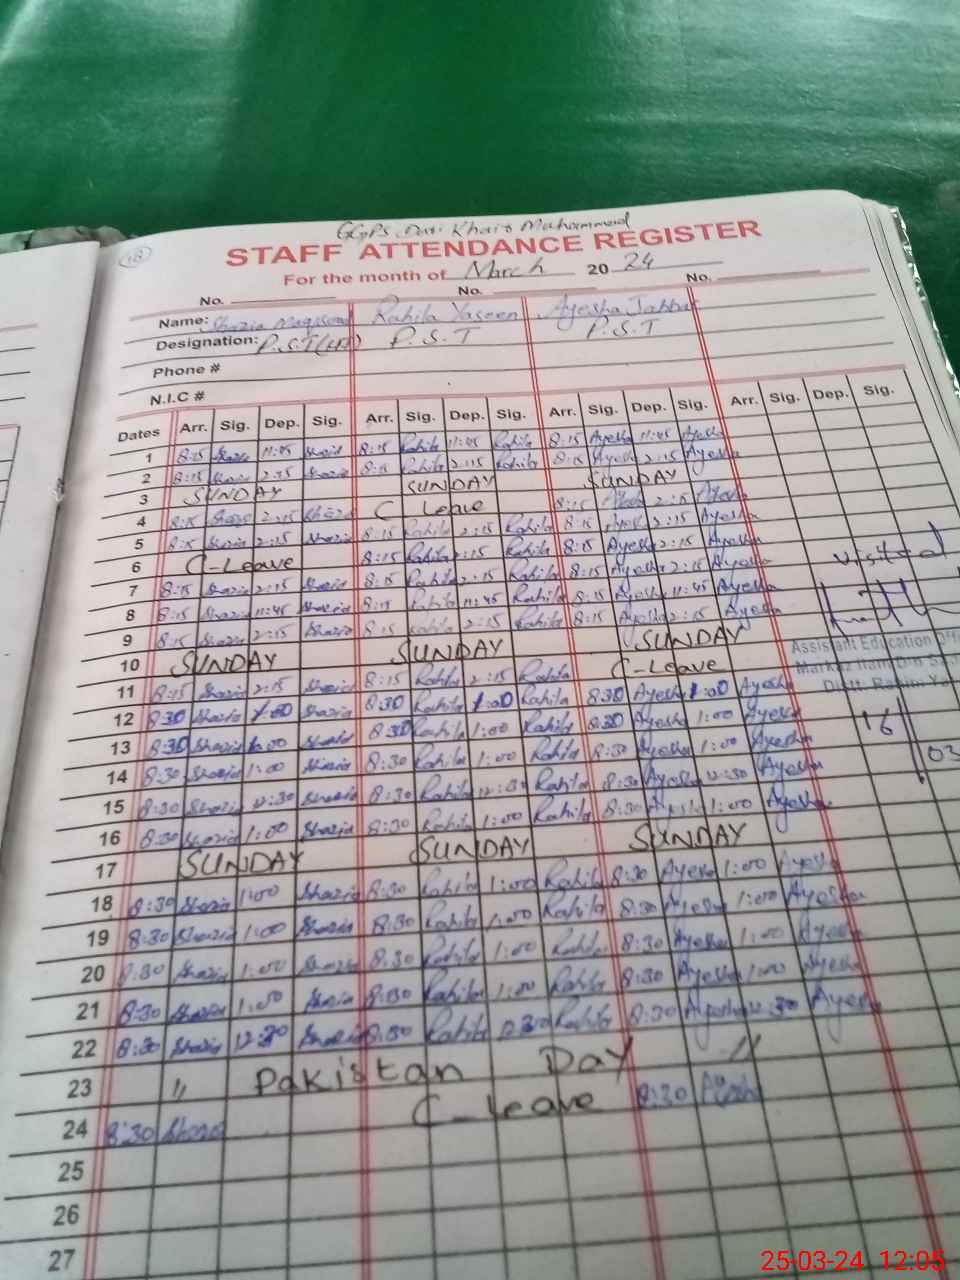 18
GGPS Khair Muhammad
STAFF ATTENDANCE REGISTER
For the month of March 20 24
No. No. No.
Name: Shazia Rahila Yaseen Ayesha Jabbar
Designation: P.S.T P.S.T P.S.T
Phone #
N.I.C #
Dates Arr. Sig. Dep. Sig. Arr. Sig. Dep. Sig. Arr. Sig. Dep. Sig. Arr. Sig. Dep. Sig.
1 8:15 Shazia 11:45 Shazia 8:15 Rahila 11:45 Rahila 8:15 Ayesha 11:45 Ayesha
2 8:15 Shazia 2:15 Shazia 8:15 Rahila 2:15 Rahila 8:15 Ayesha 2:15 Ayesha
3 SUNDAY SUNDAY SUNDAY
4 8:15 Shazia 2:15 Shazia C Leave 8:15 Ayesha 2:15 Ayesha
5 8:15 Shazia 2:15 Shazia 8:15 Rahila 2:15 Rahila 8:15 Ayesha 2:15 Ayesha
6 C-Leave 8:15 Rahila 2:15 Rahila 8:15 Ayesha 2:15 Ayesha
7 8:15 Shazia 2:15 Shazia 8:15 Rahila 2:15 Rahila 8:15 Ayesha 2:15 Ayesha
8 8:15 Shazia 11:45 Shazia 8:15 Rahila 11:45 Rahila 8:15 Ayesha 11:45 Ayesha
9 8:15 Shazia 2:15 Shazia 8:15 Rahila 2:15 Rahila 8:15 Ayesha 2:15 Ayesha
10 SUNDAY SUNDAY SUNDAY
11 8:15 Shazia 2:15 Shazia 8:15 Rahila 2:15 Rahila C-Leave
12 8:30 Shazia 1:00 Shazia 8:30 Rahila 1:00 Rahila 8:30 Ayesha 1:00 Ayesha
13 8:30 Shazia 1:00 Shazia 8:30 Rahila 1:00 Rahila 8:30 Ayesha 1:00 Ayesha
14 8:30 Shazia 1:00 Shazia 8:30 Rahila 1:00 Rahila 8:30 Ayesha 1:00 Ayesha
15 8:30 Shazia 12:30 Shazia 8:30 Rahila 12:30 Rahila 8:30 Ayesha 12:30 Ayesha
16 8:30 Shazia 1:00 Shazia 8:30 Rahila 1:00 Rahila 8:30 Ayesha 1:00 Ayesha
17 SUNDAY SUNDAY SUNDAY
18 8:30 Shazia 1:00 Shazia 8:30 Rahila 1:00 Rahila 8:30 Ayesha 1:00 Ayesha
19 8:30 Shazia 1:00 Shazia 8:30 Rahila 1:00 Rahila 8:30 Ayesha 1:00 Ayesha
20 8:30 Shazia 1:00 Shazia 8:30 Rahila 1:00 Rahila 8:30 Ayesha 1:00 Ayesha
21 8:30 Shazia 1:00 Shazia 8:30 Rahila 1:00 Rahila 8:30 Ayesha 1:00 Ayesha
22 8:30 Shazia 12:30 Shazia 8:30 Rahila 12:30 Rahila 8:30 Ayesha 12:30 Ayesha
23 " Pakistan Day "
24 8:30 Shazia C-leave 8:30 Ayesha
25
26
27
visited
Assistant Education
Markaz
16
03
25-03-24 12:05